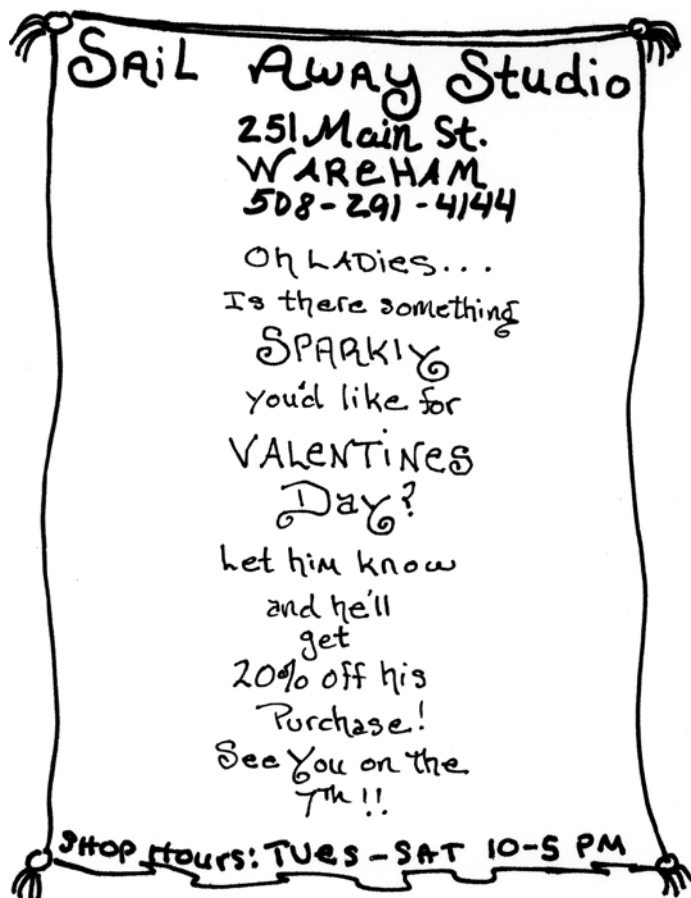 SAiL AWAy Studio
251 Main St.
WAReHAM
508-291-4144
Oh LADies...
Is there something
SPARKly
you'd like for
VALeNTiNes
Day?
Let him know
and he'll
get
20% off his
Purchase!
See You on the
7th!!
SHOP Hours: TUes-SAT 10-5 PM